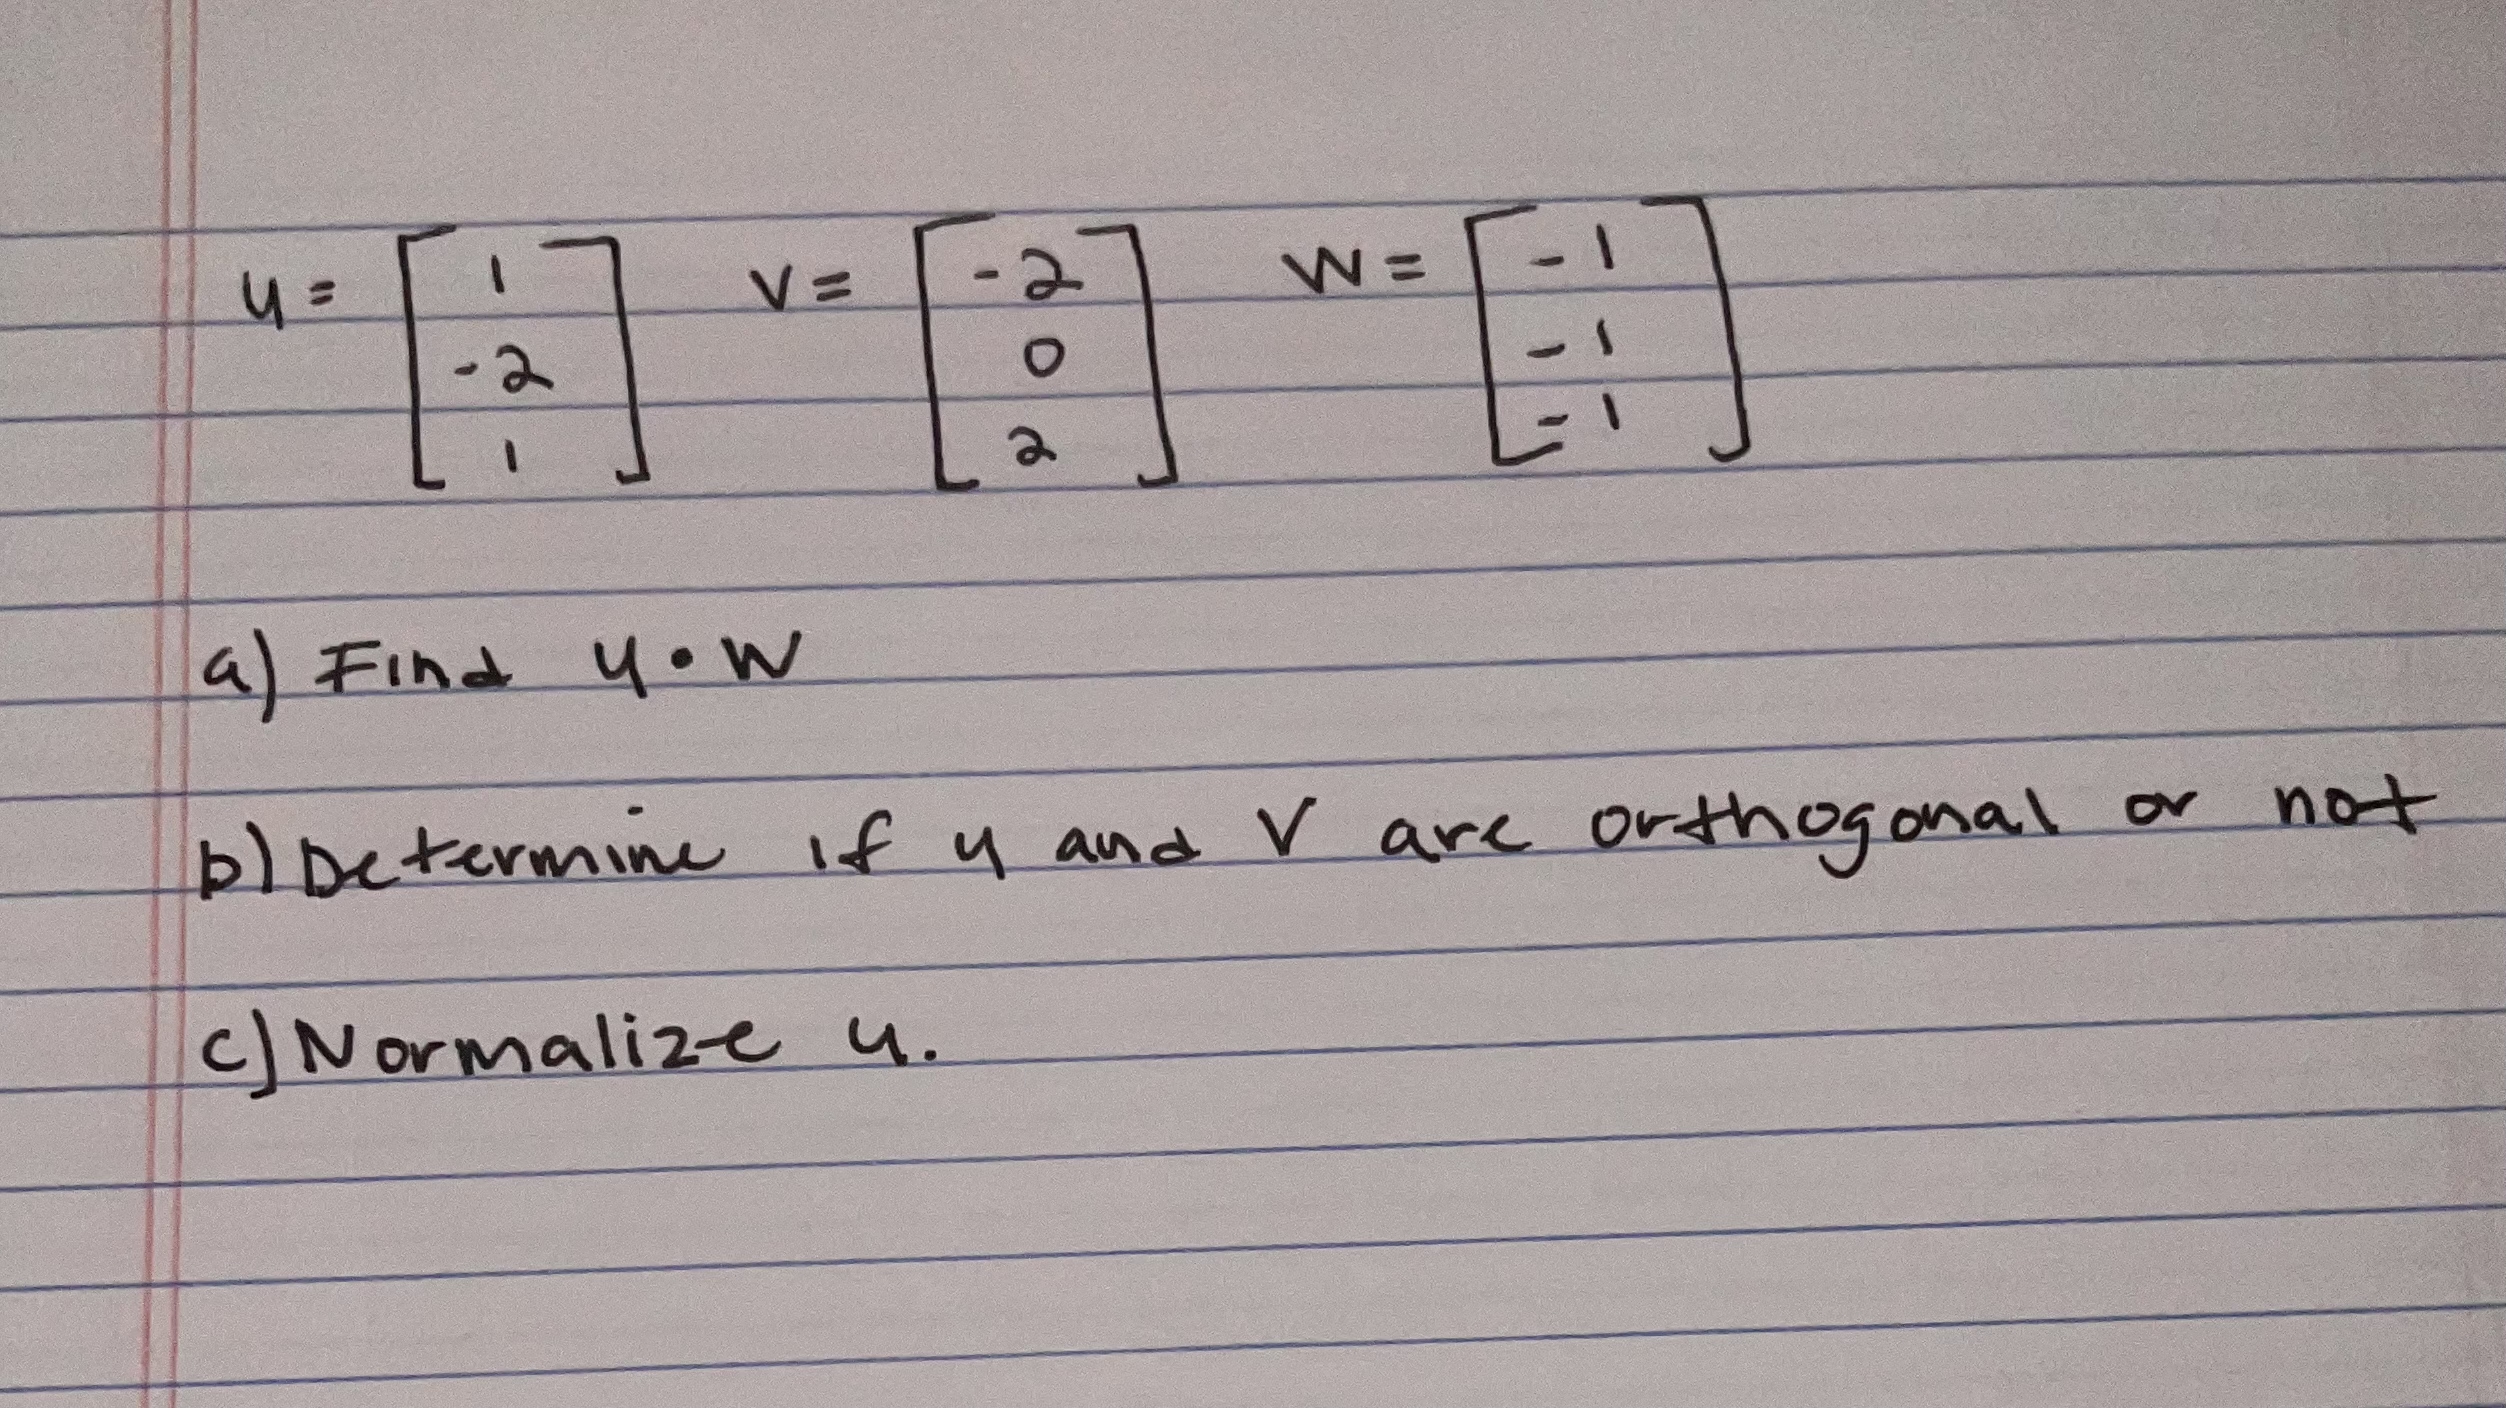 u = [ 1 ] v = [ -2 ] w = [ -1 ]
[ -2 ] [ 0 ] [ -1 ]
[ 1 ] [ 2 ] [ -1 ]
a) Find u • w
b) Determine if u and v are orthogonal or not
c) Normalize u.